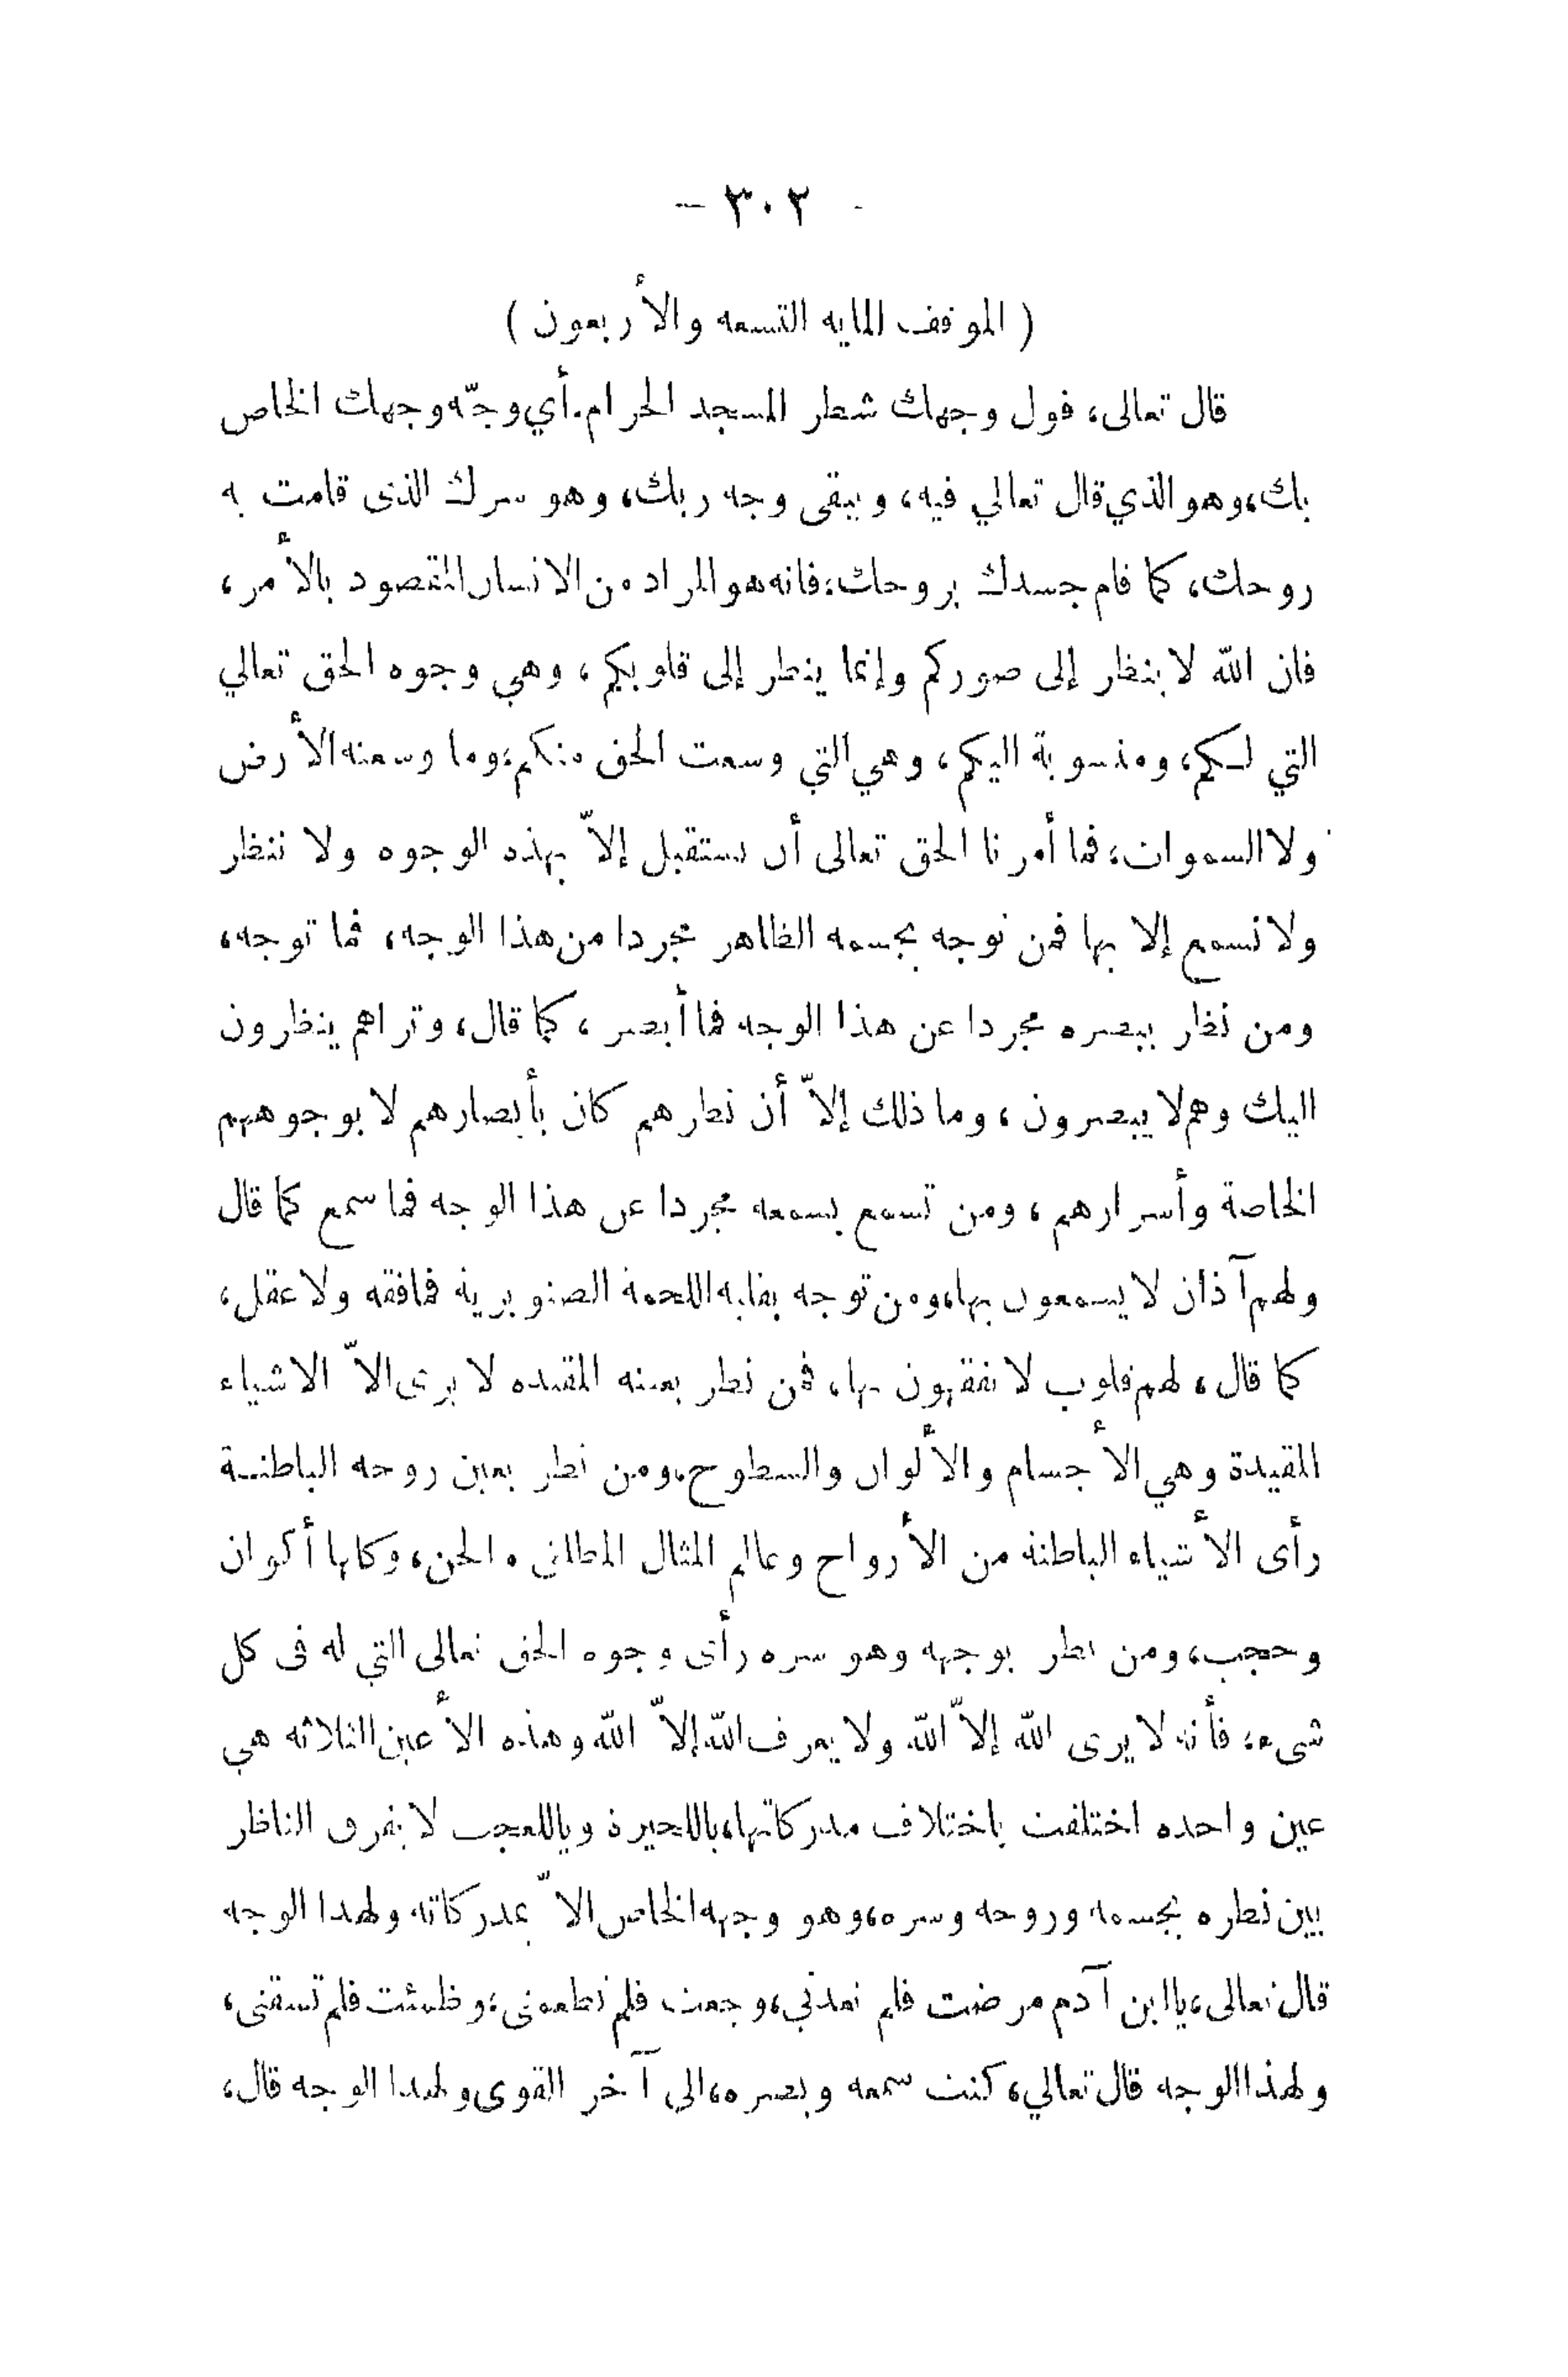 - ٣٠٢ -
( الموقف المايه التسعه والأربعون )
قال تعالى، فول وجهك شطر المسجد الحرام. أي وجّه وجهك الخاص
بك، وهو الذي قال تعالي فيه، ويبقى وجه ربك، وهو سرك الذى قامت به
روحك، كما قام جسدك بروحك، فانه هو المراد من الانسان المقصود بالأمر،
فان الله لا ينظر إلى صوركم وإنما ينظر إلى قلوبكم، وهي وجوه الحق تعالي
التي لكم، ومنسوبة اليكم، وهي التي وسعت الحق منكم، وما وسعته الأرض
ولا السموات، فما أمرنا الحق تعالى أن نستقبل إلاّ بهذه الوجوه ولا ننظر
ولا نسمع إلا بها فمن توجه بجسمه الظاهر مجردا من هذا الوجه، فما توجه،
ومن نظر ببصره مجردا عن هذا الوجه فما أبصر، كما قال، وتراهم ينظرون
اليك وهم لا يبصرون، وما ذلك إلاّ أن نظرهم كان بأبصارهم لا بوجوههم
الخاصة وأسرارهم، ومن تسمع بسمعه مجردا عن هذا الوجه فما سمع كما قال
ولهم آذان لا يسمعون بها، ومن توجه بقلبه اللحمة الصنوبرية فما فقه ولا عقل،
كما قال، لهم قلوب لا يفقهون بها، فمن نظر بعينه المقيده لا يرى الاّ الاشياء
المقيدة وهي الأجسام والألوان والسطوح، ومن نظر بعين روحه الباطنة
رأى الأشياء الباطنة من الأرواح وعالم المثال المطلق والجن، وكلها أكوان
وحجب، ومن نظر بوجهه وهو سره رأى وجوه الحق تعالى التي له فى كل
شىء، فأنه لا يرى الله إلاّ الله ولا يعرف الله إلاّ الله وهذه الأعين الثلاثه هي
عين واحده اختلفت باختلاف مدركاتها، ياللحيرة وياللعجب لا يفرق الناظر
بين نظره بجسمه وروحه وسره، وهو وجهه الخاص الاّ بمدركاته ولهذا الوجه
قال تعالى، يا ابن آدم مرضت فلم تعدني، وجعت فلم تطعمنى، وظمئت فلم تسقنى،
ولهذا الوجه قال تعالي، كنت سمعه وبصره، الى آخر القوى ولهذا الوجه قال،